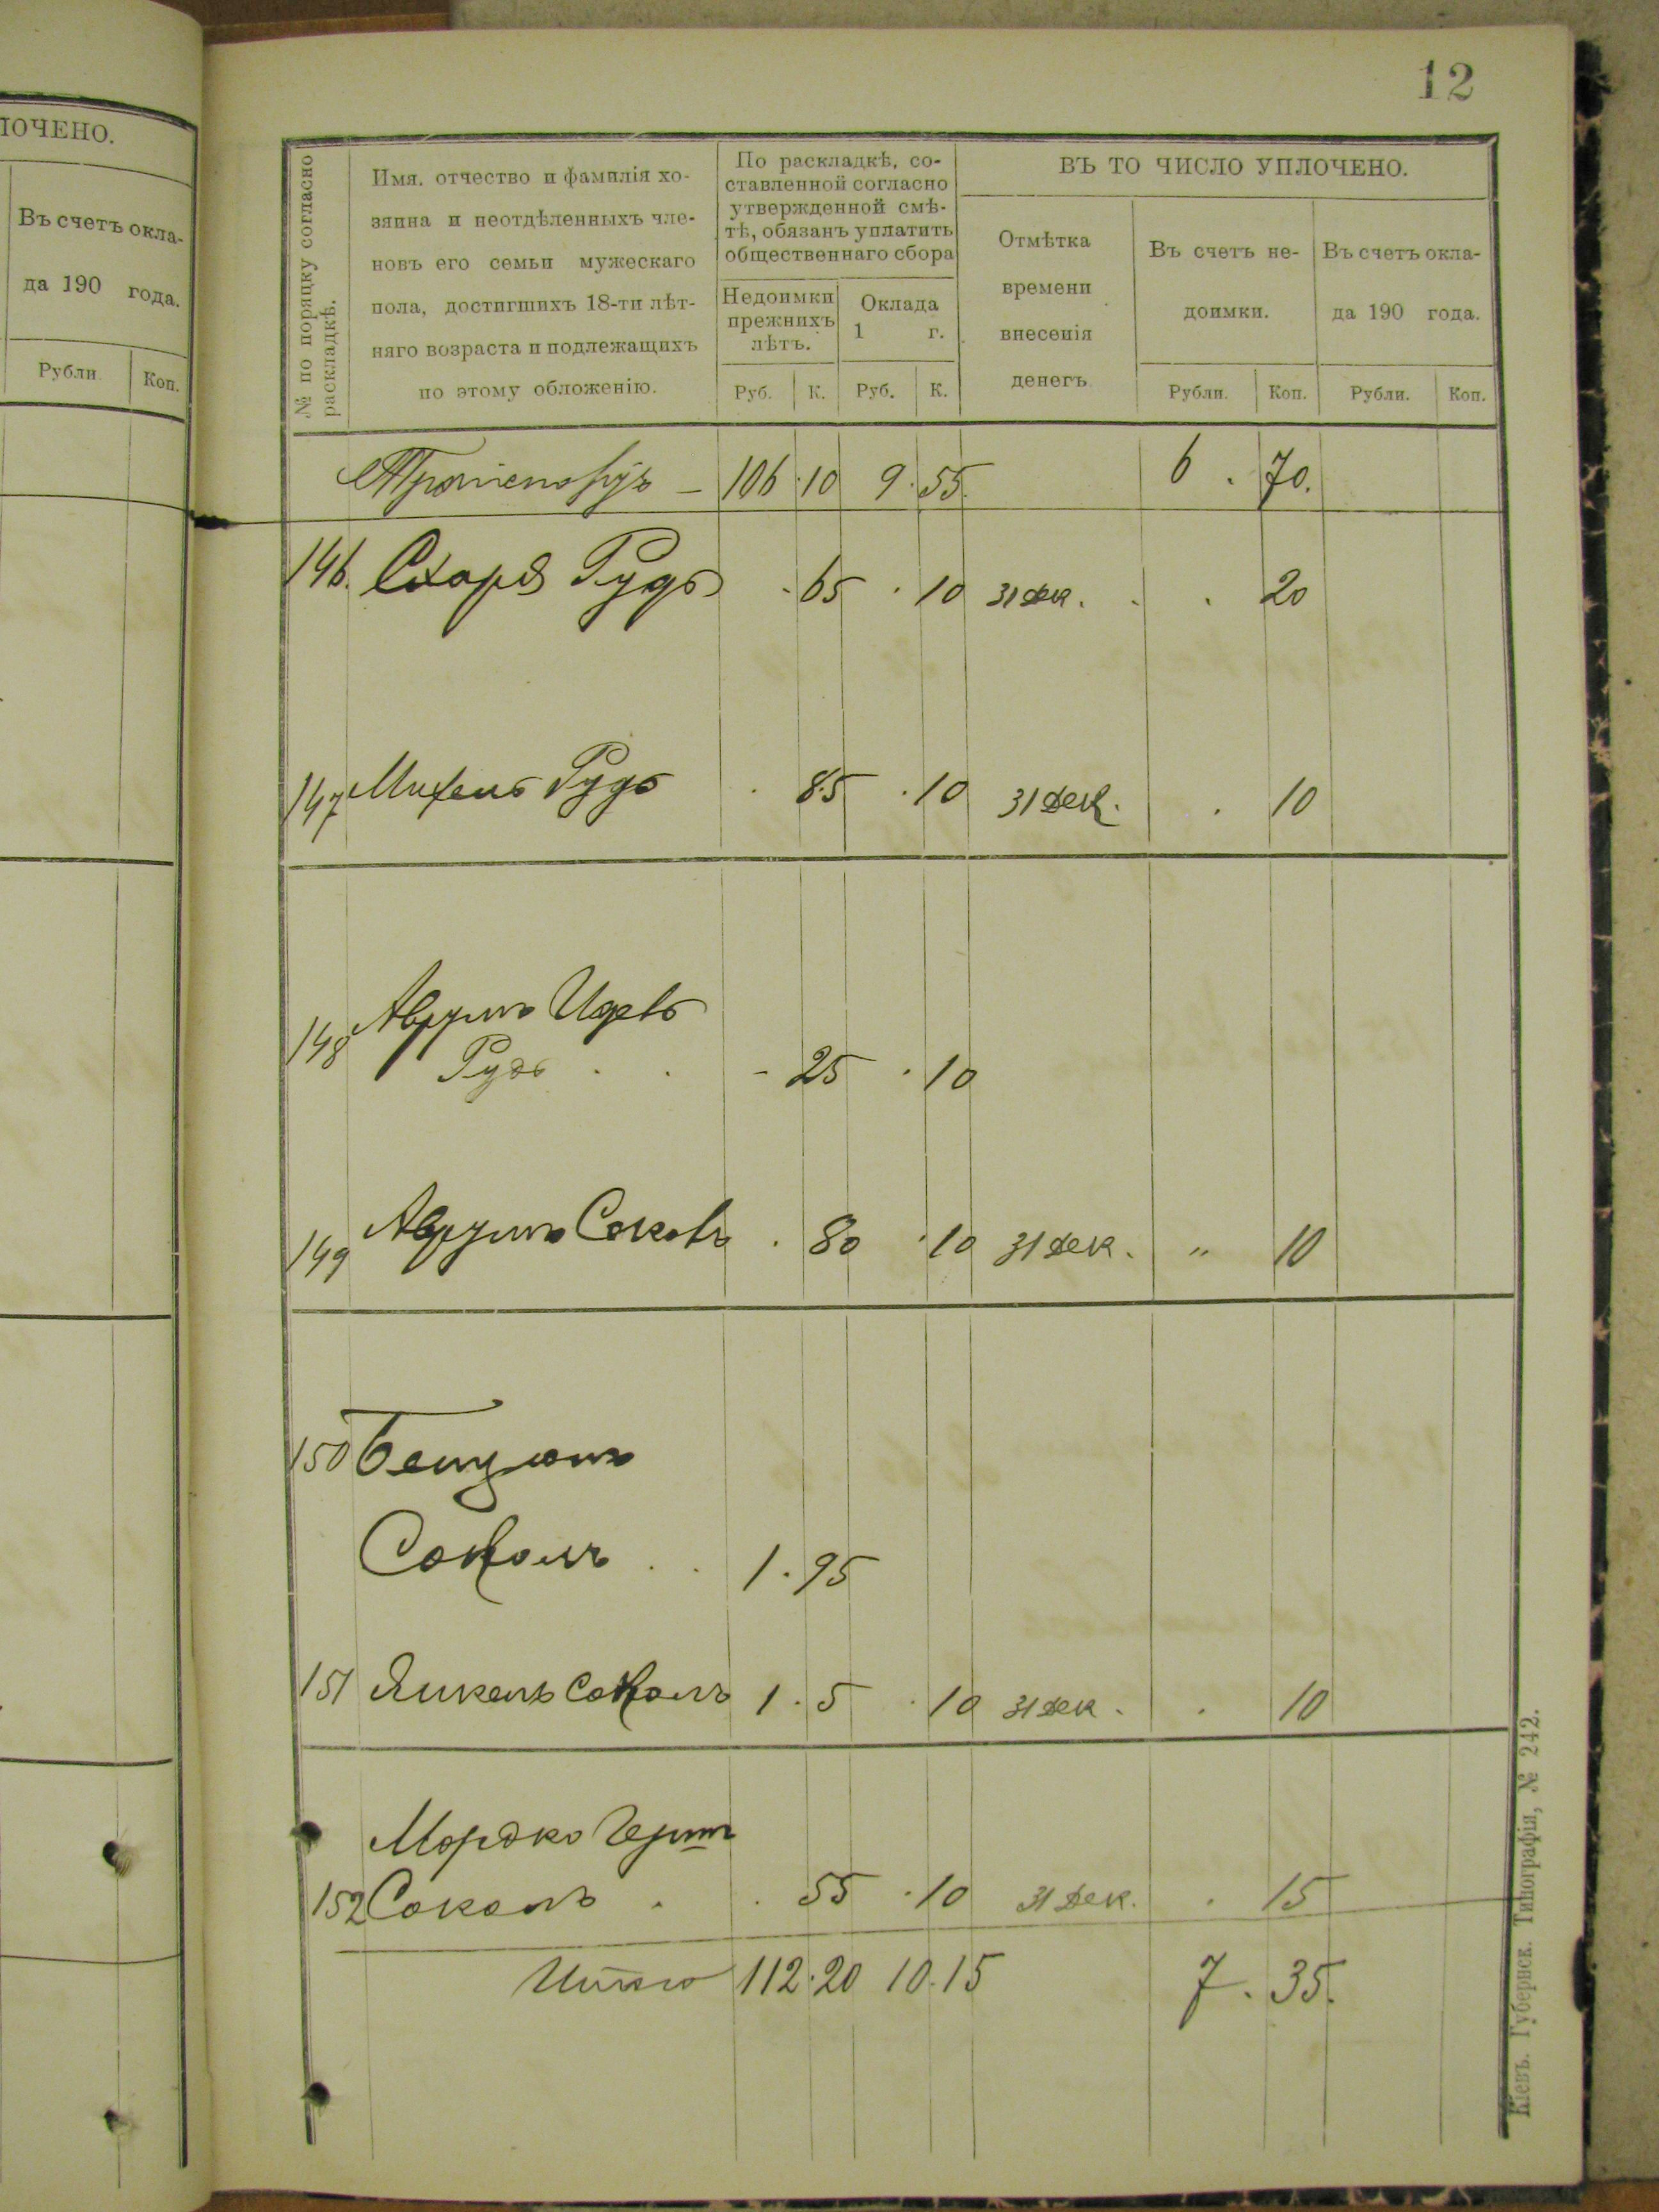 12
ЛОЧЕНО.
Въ счетъ окла-
да 190 года.
Рубли.
Коп.
№ по порядку согласно
раскладкѣ.
Имя, отчество и фамилія хо-
зяина и неотдѣленныхъ чле-
новъ его семьи мужескаго
пола, достигшихъ 18-ти лѣт-
няго возраста и подлежащихъ
по этому обложенію.
По раскладкѣ, со-
ставленной согласно
утвержденной смѣ-
тѣ, обязанъ уплатить
общественнаго сбора
Недоимки
прежнихъ
лѣтъ.
Оклада
1 г.
Руб. К. Руб. К.
ВЪ ТО ЧИСЛО УПЛОЧЕНО.
Отмѣтка
времени
внесенія
денегъ
Въ счетъ не-
доимки.
Рубли. Коп.
Въ счетъ окла-
да 190 года.
Рубли. Коп.
106 10 9 55 6 70
146. Рудь 65 10 31 дек. 20
147 Михель Рудь 85 10 31 дек. 10
148 Аврумъ
Рудь 25 10
149 Аврумъ 80 10 31 дек. " 10
150
Соколъ 1 95
151 Янкель Соколъ 1 5 10 31 дек. 10
Мордко Герш
152 Соколъ 55 10 31 дек. 15
Итого 112 20 10 15 7 35
Кіевъ. Губернск. Типографія, № 242.